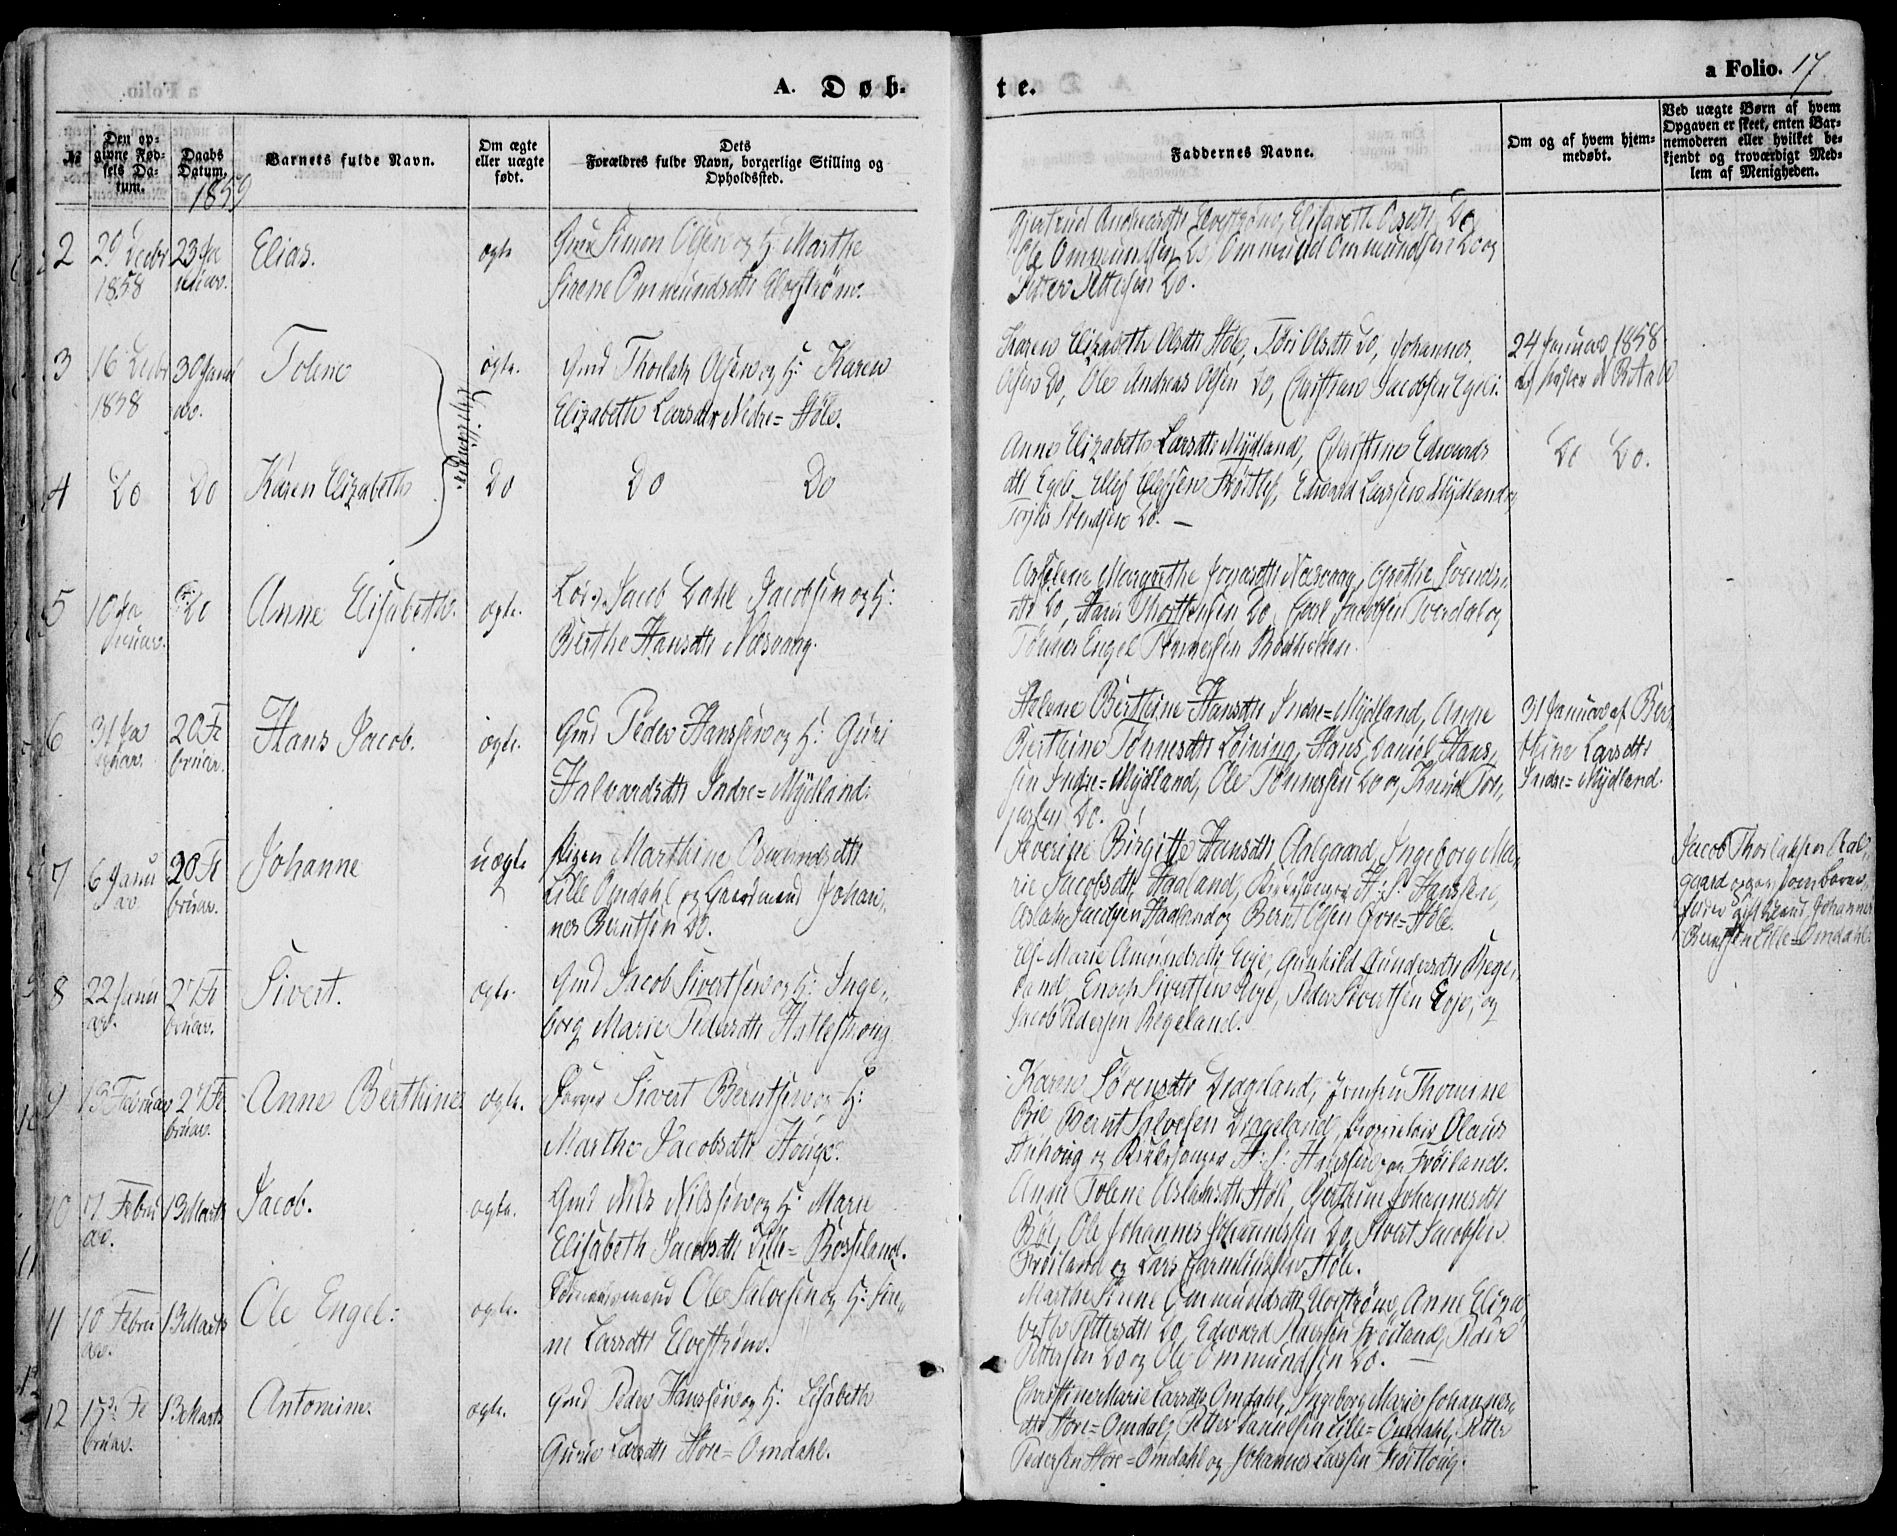 A. Døb-
te.
a Folio. 17
№
Den op-
givne Fød-
sels Da-
tum.
Daabs
Datum.
1859
Barnets fulde Navn.
Om ægte
eller uægte
født.
Dets
Forældres fulde Navn, borgerlige Stilling og
Opholdssted.
Faddernes Navne.
Om og af hvem hjem-
medøbt.
Ved uægte Børn af hvem
Opgaven er skeet, enten Bar-
nemoderen eller hvilket be-
kjendt og troværdigt Med-
lem af Menigheden.
2
29 Decbr
1858
23 Ja
nuar.
Elias.
ægte
Simon Olsen og H: Marthe
Sirene Ommundsdtr Elvestrøm.
Gjertrud Andreasdtr Elvestrøm, Elisabeth Olsdtr Do,
Ole Ommundsen Do, Ommund Ommundsen Do og
Petter Pettersen Do.
3
16 Decbr
1858
30 Janu
ar.
Tolene
ægte.
Gmd Thorlak Olsen og H: Karen
Elizabeth Larsdtr Nedre=Høle.
Karen Elizabeth Olsdtr Høle, Tøri Olsdtr Do, Johannes
Olsen Do, Ole Andreas Olsen Do, Christian Jacobsen Egeli.
24 Januar 1858
4
Do
Do
Karen Elizabeth
Tvillinger.
Do
Do Do
Anne Elizabeth Larsdtr Mydland, Christine Edvards
dtr Egeli, Ellef Ellefsen Frøitlog, Edvard Larssen Mydland og
Svendsen Do. —
Do Do.
5
10 Ja
nuar.
Do
Anne Elisabeth.
ægte.
Jacob Dahl Jacobsen og H:
Berthe Hansdtr Næsvaag.
Margrethe Jonasdtr Næsvaag, Grethe Svends-
dtr Do, Hans Thorstensen Do, Carl Jacobsen og
Tønnes Engel Tønnessen
6
31 Ja
nuar.
20 Fe
bruar.
Hans Jacob.
ægte.
Gmd Peder Hanssen og H: Guri
Halvardsdtr Indre=Mydland.
Helene Berthine Hansdtr Indre=Mydland, Anne
Berthine Tønnesdtr Løining, Hans Daniel Hans-
sen Indre=Mydland, Ole Tønnessen Do og Knud Tor-
Do.
31 Januar af Ber-
thine Larsdtr
Indre=Mydland.
7
6 Janu
ar
20 Fe
bruar.
Johanne
uægte
Pigen Marthine Osmundsdtr
Lille Omdahl og Gaardmand Johan-
nes Berntsen Do.
Severine Birgitte Hansdtr Aalgaard, Ingeborg Ma-
rie Jacobsdtr Haaland, Kirkesanger H. S. Hanssen,
Aslak Jacobsen Haaland og Bernt Olsen Øvre=Høle.
Jacob Thorlaksen Aal-
gaard opgav, som Barne-
fader gift Mand Johannes
Berntsen Lille=Omdahl.
8
22 Janu
ar.
27 Fe
bruar.
Sivert.
ægte.
Gmd Jacob Sivertsen og H: Inge-
borg Marie Pedersdtr
Marie Amundsdtr Eeje, Gunhild Gundersdtr Rege-
land, Enoch Sivertsen Eeje, Peder Sivertsen Eeje, og
Jacob Pedersen Regeland.
9
13 Januar
27 Fe
bruar.
Anne Berthine
ægte.
Sivert Berntsen og H:
Marthe Jacobsdtr Houge.
Karen Sørensdtr Drageland, Jomfru Thomine
Bernt Salvesen Drageland, Olaus
og Kirkesanger H. S. Hanssen, Frøiland.
10
Febru
ar.
13 Marts
Jacob.
ægte.
Gmd Nils Nilssen og H: Marie
Elisabeth Jacobsdtr Lille=Rosseland.
Anne Tolene Aslaksdtr Høle, Berthine Johannesdtr
Bøe, Ole Johannes Johannessen Do, Sivert Jacobsen
Frøiland og Lars Høle.
11
10 Febru
ar.
13 Marts
Ole Engel.
ægte.
Ole Salvesen og H: Sire-
ne Larsdtr Elvestrøm.
Marthe Sirene Ommundsdtr Elvestrøm, Anne Eliza-
beth Pettersdtr Do, Edvard Pedersen Frøiland, Peder
Pettersen Do og Ole Ommundsen Do. —
12
15de Fe
bruar.
13 Marts
Antomine.
ægte.
Gmd Peder Hanssen og H: Lisabeth
Gurie Larsdtr Store=Omdahl.
Christine Marie Larsdtr Omdahl, Ingeborg Marie Johannes-
dtr Store=Omdal, Petter Danielsen Lille=Omdahl, Petter
Pedersen Store=Omdahl og Johannes Larssen